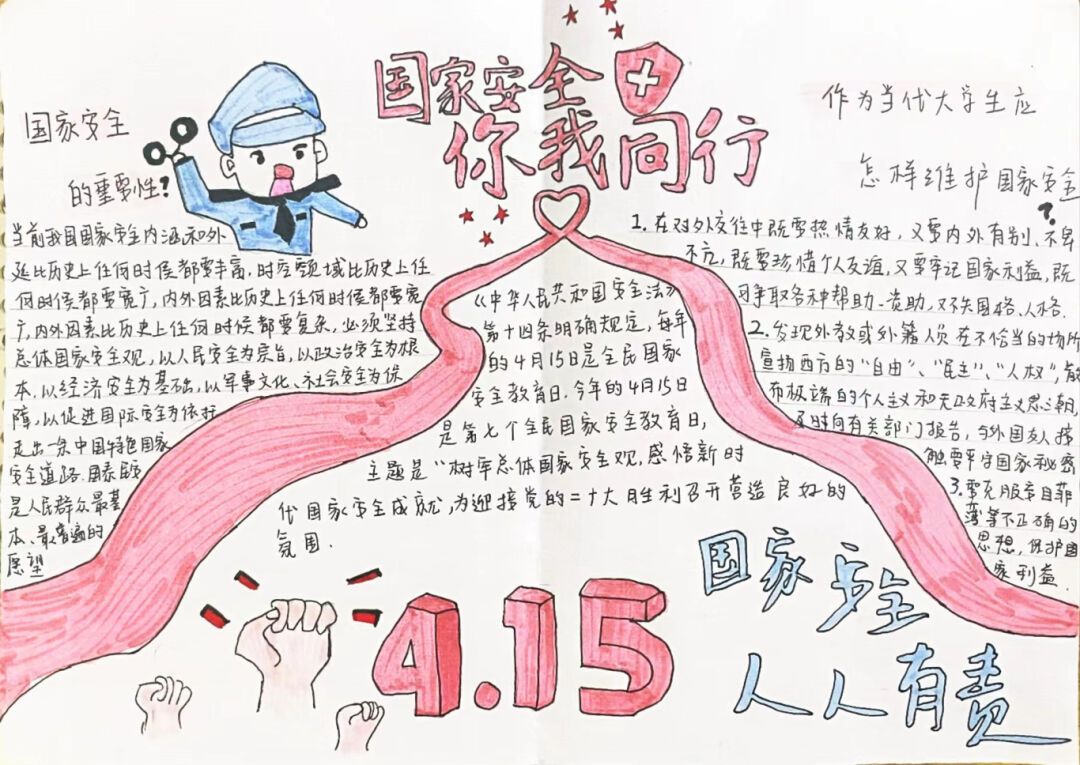 国家安全
你我同行
国家安全
的重要性?
当前我国国家安全内涵和外
延比历史上任何时候都要丰富,时空领域比历史上任
何时候都要宽广,内外因素比历史上任何时候都要宽
广,内外因素比历史上任何时候都要复杂,必须坚持
总体国家安全观,以人民安全为宗旨,以政治安全为根
本,以经济安全为基础,以军事文化、社会安全为保
障,以促进国际安全为依托
走出一条中国特色国家
安全道路.国泰民安
是人民群众最基
本、最普遍的
愿望
《中华人民共和国安全法》
第十四条明确规定,每年
的4月15日是全民国家
安全教育日.今年的4月15日
是第七个全民国家安全教育日,
主题是"树牢总体国家安全观,感悟新时
代国家安全成就,为迎接党的二十大胜利召开营造良好的
氛围.
作为当代大学生应
怎样维护国家安全?
1.在对外交往中既要热情友好,又要内外有别、不卑
不亢,既要珍惜个人友谊,又要牢记国家利益,既
可争取各种帮助、资助,又不失国格、人格.
2.发现外教或外籍人员在不恰当的场所
宣扬西方的"自由"、"民主"、"人权",散
布极端的个人主义和无政府主义思潮,
及时向有关部门报告,与外国友人接
触要严守国家秘密
3.要克服妄自菲
薄等不正确的
思想,保护国
家利益
4.15
国家安全
人人有责